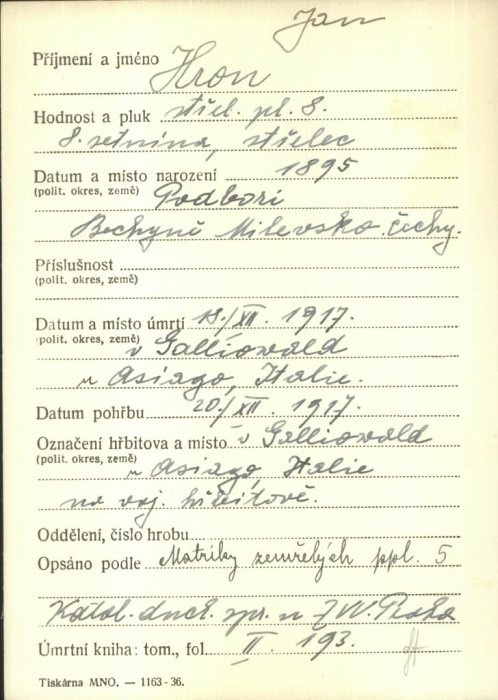 Jan
Příjmení a jméno Hron
Hodnost a pluk střel. pl. 8.
8. setnina, střelec
Datum a místo narození 1895
(polit. okres, země) Podboří
Bechyně Milevsko. Čechy.
Příslušnost
(polit. okres, země)
Datum a místo úmrtí 18./XII. 1917.
(polit. okres, země) v Galliowald
u Asiago, Italie.
Datum pohřbu 20./XII. 1917.
Označení hřbitova a místo v Galliowald
(polit. okres, země) u Asiago, Italie
na voj. hřbitově.
Oddělení, číslo hrobu
Opsáno podle Matriky zemřelých ppl. 5
Katol. duch. spr. u ZVV. Praha
Úmrtní kniha: tom., fol. II. 193.
Tiskárna MNO. — 1163-36.